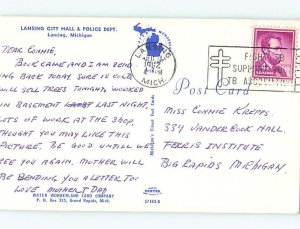 LANSING CITY HALL & POLICE DEPT.
Lansing, Michigan
DEAR CONNIE,
BOOK CAME AND I AM SEND
ING BACK TODAY SURE IS COLD
WILL SELL TREES TONIGHT, WORKED
IN BASEMENT LAST NIGHT,
LOTS OF WORK AT THE SHOP.
THOUGHT YOU MAY LIKE THIS
PICTURE. BE GOOD UNTIL WE
SEE YOU AGAIN. MOTHER WILL
BE SENDING YOU A LETTER TO.
LOVE MOTHER & DAD
WATER WONDERLAND CARD COMPANY
P. O. Box 335, Grand Rapids, Mich.
LANSING
MICH.
FIGHT TB
SUPPORT
TB ASSOCIATION
Post Card
MISS CONNIE KREPPS
339 VANDERCOOK HALL.
FERRIS INSTITUTE
BIG RAPIDS MICHIGAN.